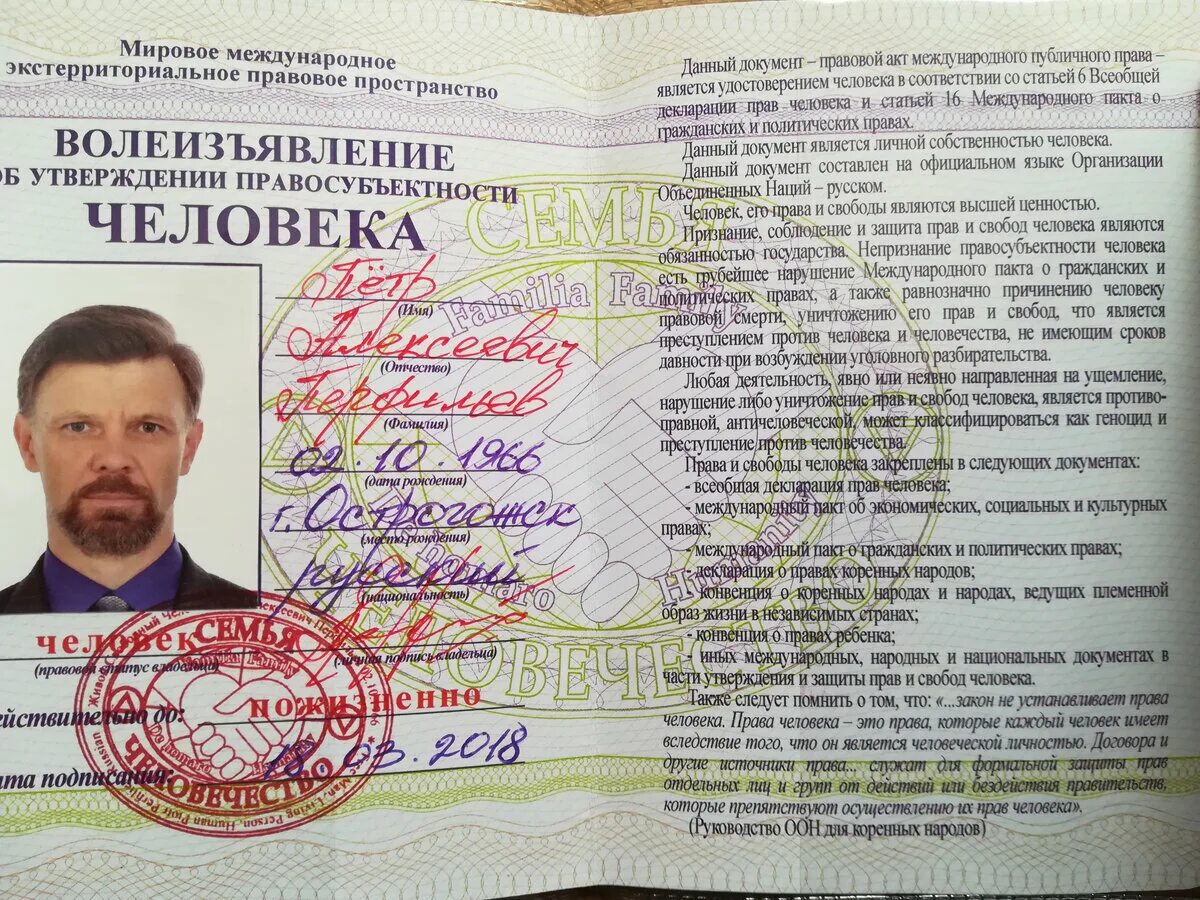 Мировое международное
экстерриториальное правовое пространство
ВОЛЕИЗЪЯВЛЕНИЕ
ОБ УТВЕРЖДЕНИИ ПРАВОСУБЪЕКТНОСТИ
ЧЕЛОВЕКА
Пётр
(Имя)
Алексеевич
(Отчество)
Перфильев
(Фамилия)
02.10.1966
(дата рождения)
г. Острогожск
(место рождения)
русский
(национальность)
человек
(правовой статус владельца)
(личная подпись владельца)
действительно до: пожизненно
дата подписания: 18.03.2018
СЕМЬЯ
Familia Family
Humanity
ЧЕЛОВЕЧЕСТВО
СЕМЬЯ
Familia Family
ЧЕЛОВЕЧЕСТВО
Данный документ – правовой акт международного публичного права –
является удостоверением человека в соответствии со статьей 6 Всеобщей
декларации прав человека и статьей 16 Международного пакта о
гражданских и политических правах.
Данный документ является личной собственностью человека.
Данный документ составлен на официальном языке Организации
Объединенных Наций – русском.
Человек, его права и свободы являются высшей ценностью.
Признание, соблюдение и защита прав и свобод человека являются
обязанностью государства. Непризнание правосубъектности человека
есть грубейшее нарушение Международного пакта о гражданских и
политических правах, а также равнозначно причинению человеку
правовой смерти, уничтожению его прав и свобод, что является
преступлением против человека и человечества, не имеющим сроков
давности при возбуждении уголовного разбирательства.
Любая деятельность, явно или неявно направленная на ущемление,
нарушение либо уничтожение прав и свобод человека, является противо-
правной, античеловеческой, может классифицироваться как геноцид и
преступление против человечества.
Права и свободы человека закреплены в следующих документах:
- всеобщая декларация прав человека;
- международный пакт об экономических, социальных и культурных
правах;
- международный пакт о гражданских и политических правах;
- декларация о правах коренных народов;
- конвенция о коренных народах и народах, ведущих племенной
образ жизни в независимых странах;
- конвенция о правах ребенка;
- иных международных, народных и национальных документах в
части утверждения и защиты прав и свобод человека.
Также следует помнить о том, что: «...закон не устанавливает права
человека. Права человека – это права, которые каждый человек имеет
вследствие того, что он является человеческой личностью. Договора и
другие источники права... служат для формальной защиты прав
отдельных лиц и групп от действий или бездействия правительств,
которые препятствуют осуществлению их прав человека».
(Руководство ООН для коренных народов)